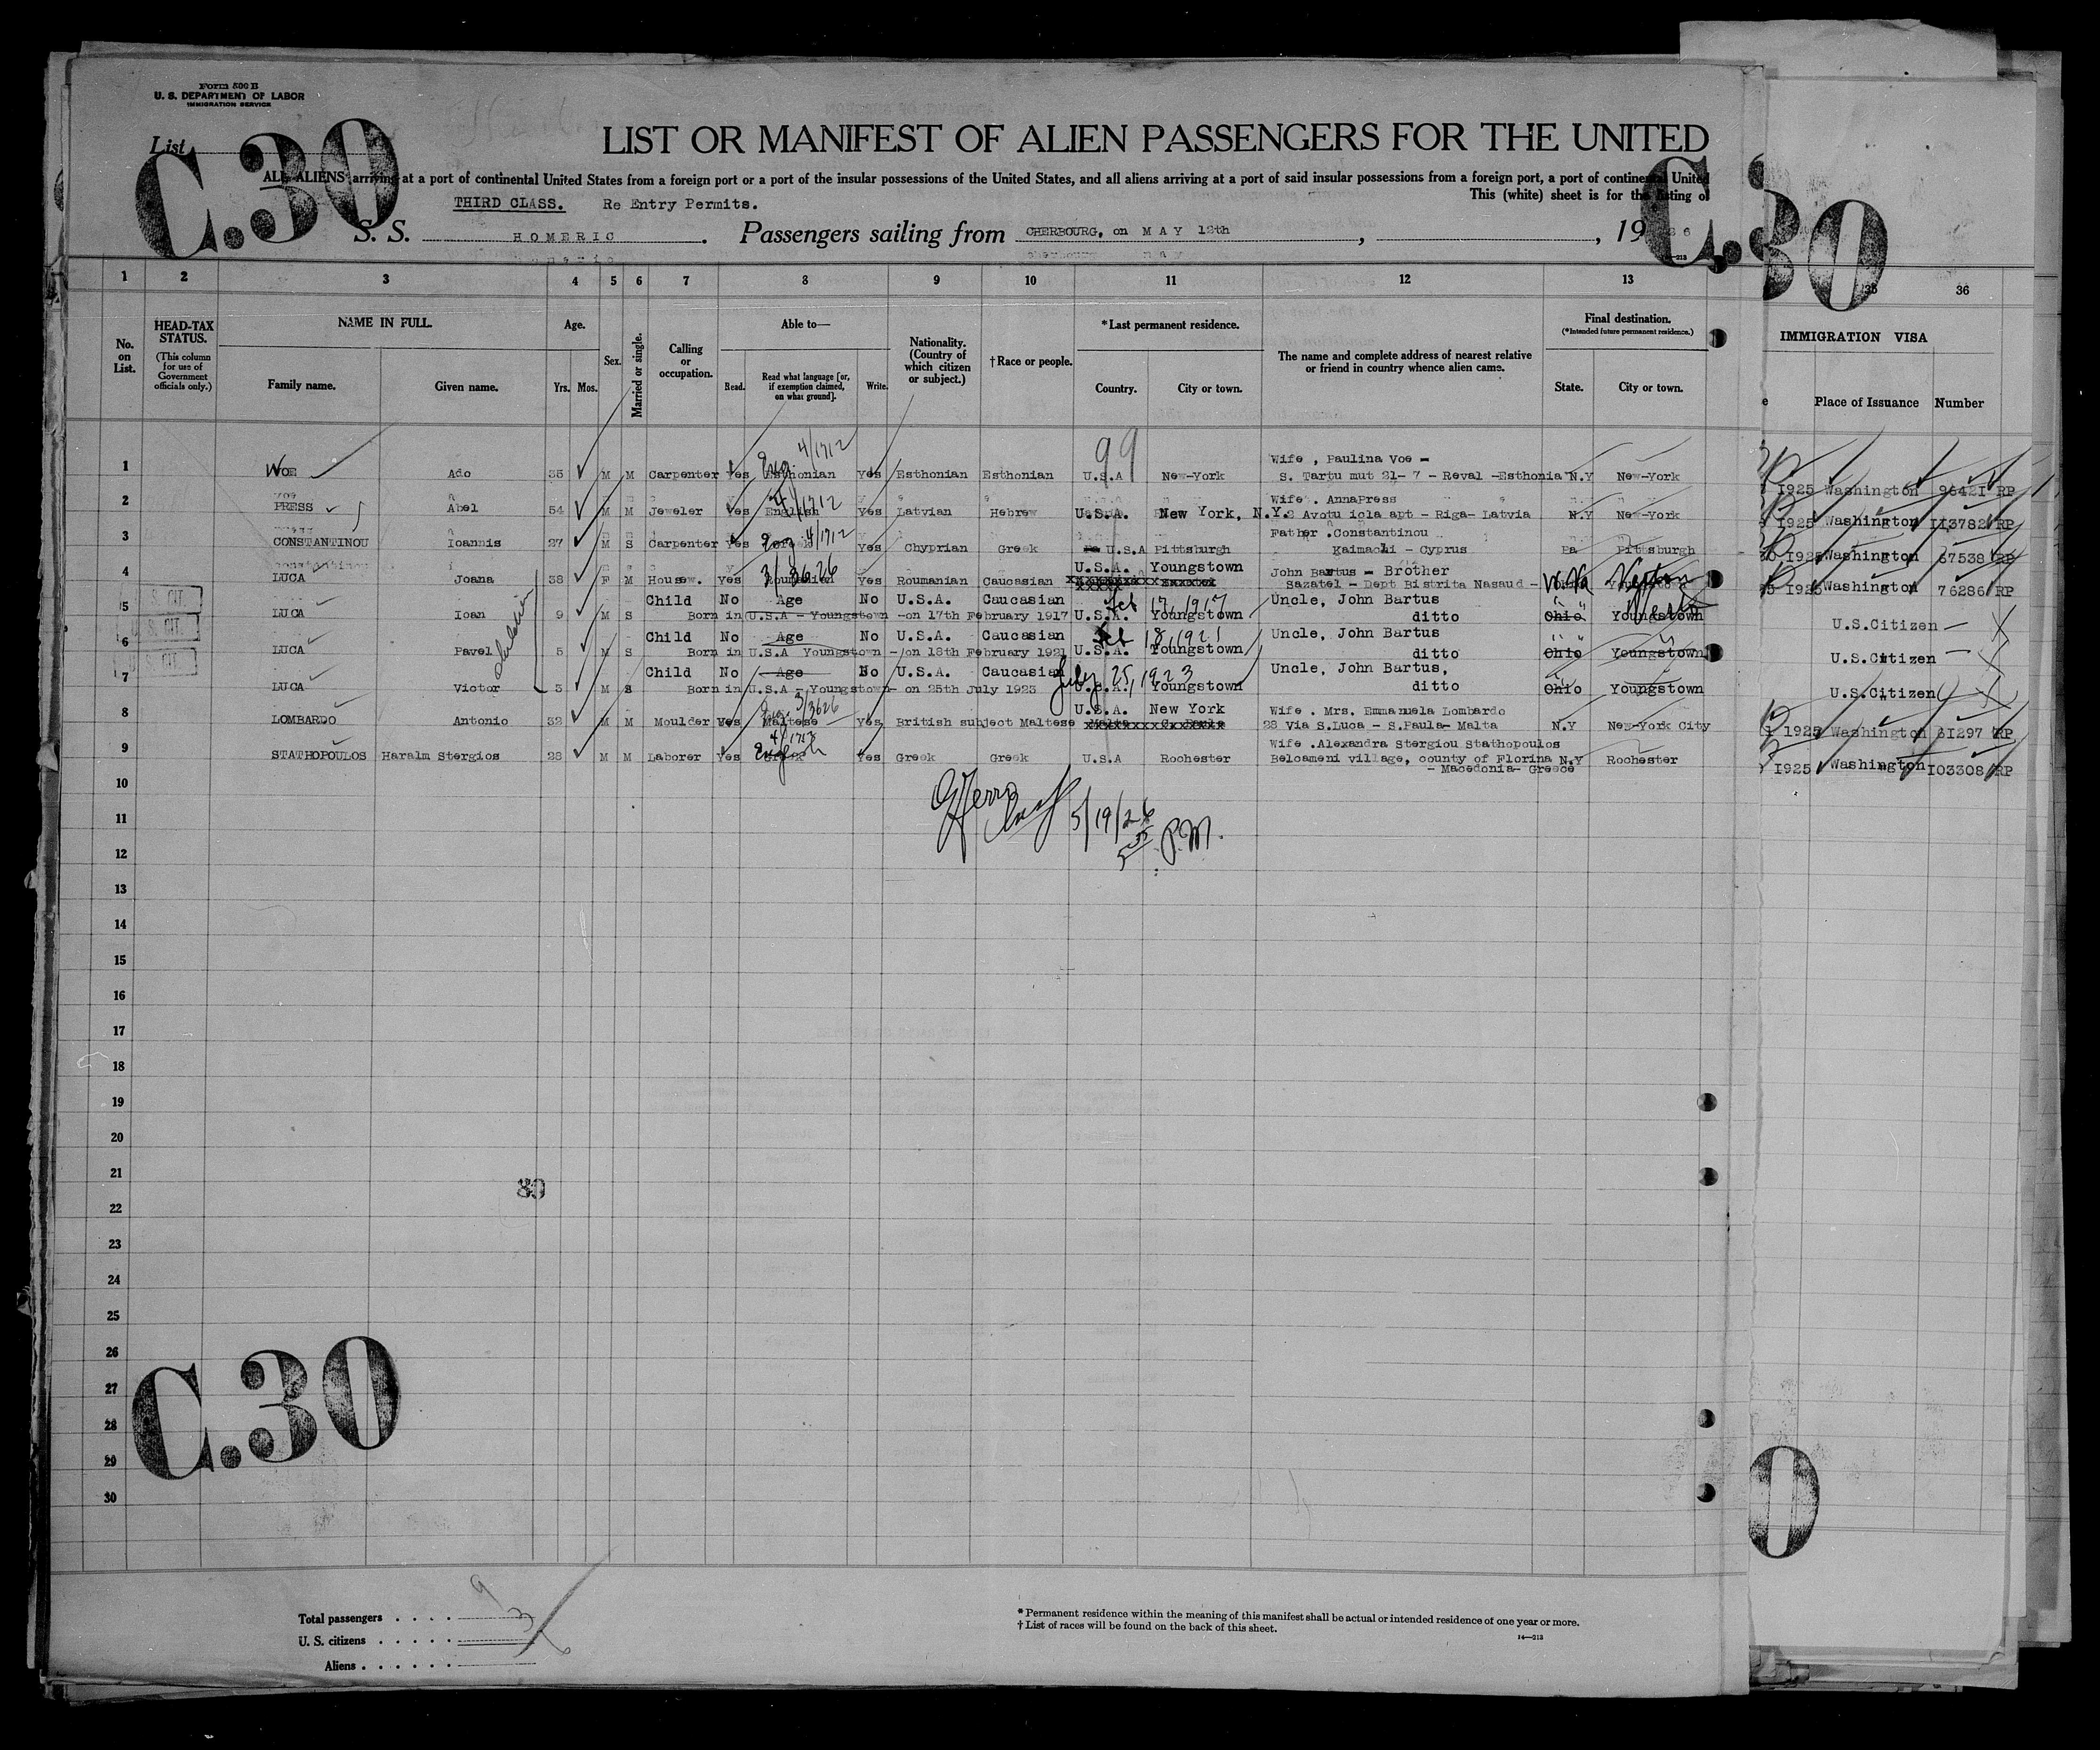 Form 500 B
U. S. DEPARTMENT OF LABOR
IMMIGRATION SERVICE
List
C.30
C.30
LIST OR MANIFEST OF ALIEN PASSENGERS FOR THE UNITED
ALL ALIENS arriving at a port of continental United States from a foreign port or a port of the insular possessions of the United States, and all aliens arriving at a port of said insular possessions from a foreign port, a port of continental United
This (white) sheet is for the listing of
THIRD CLASS. Re Entry Permits.
S. S. HOMERIC . Passengers sailing from CHERBOURG, on MAY 12th , , 19 26
1 2 3 4 5 6 7 8 9 10 11 12 13 35 36
No. on List.
HEAD-TAX STATUS.
(This column for use of Government officials only.)
NAME IN FULL.
Family name. Given name.
Age.
Yrs. Mos.
Sex.
Married or single.
Calling or occupation.
Able to—
Read. Read what language [or, if exemption claimed, on what ground]. Write.
Nationality. (Country of which citizen or subject.)
†Race or people.
*Last permanent residence.
Country. City or town.
The name and complete address of nearest relative or friend in country whence alien came.
Final destination.
(*Intended future permanent residence.)
State. City or town.
IMMIGRATION VISA
Place of Issuance Number
99
4/1712
Wife , Paulina Voe -
1 VOE Ado 35 M M Carpenter Yes Eng Esthonian Yes Esthonian Esthonian U.S.A New-York S. Tartu mut 21- 7 - Reval -Esthonia N.Y New-York 1925 Washington 96421 RP
Wife . AnnaPress
2 PRESS Abel 54 M M Jeweler Yes English 4/1712 Yes Latvian Hebrew U.S.A. New York, N.Y. 2 Avotu iela apt - Riga- Latvia N.Y New-York 1925 Washington 113782 RP
Father .Constantinou
3 CONSTANTINOU Ioannis 27 M S Carpenter Yes Eng 4/1712 Yes Chyprian Greek Pa U.S.A Pittsburgh Kaimacli - Cyprus Pa Pittsburgh 1925 Washington 67538 RP
U.S.A. Youngstown John Bartus - Brother
4 LUCA Joana 38 F M Housew. Yes Roumanian 3/3626 Yes Roumanian Caucasian Sazatel - Dept Bistrita Nasaud - W.Va 1925 Washington 76286 RP
Child No Age No U.S.A. Caucasian Feb 17, 1917 Uncle, John Bartus
5 LUCA Ioan 9 M S Born in U.S.A - Youngstown -on 17th February 1917 U.S.A. Youngstown ditto Ohio Youngstown U.S.Citizen
Child No Age No U.S.A. Caucasian Feb 18, 1921 Uncle, John Bartus
6 LUCA Pavel 5 M S Born in U.S.A Youngstown -on 18th February 1921 U.S.A. Youngstown ditto Ohio Youngstown U.S.Citizen
Child No Age No U.S.A. Caucasian July 25, 1923 Uncle, John Bartus,
7 LUCA Victor 3 M S Born in U.S.A - Youngstown- on 25th July 1923 U.S.A. Youngstown ditto Ohio Youngstown U.S.Citizen
U.S. CIT.
U.S. CIT.
U.S. CIT.
3/3626
U.S.A. New York Wife . Mrs. Emmanuela Lombardo
8 LOMBARDO Antonio 32 M M Moulder Yes Maltese Yes British subject Maltese 28 Via S.Luca - S.Paula- Malta N.Y New-York City 1925 Washington 61297 RP
4/1713
Wife .Alexandra Stergiou Stathopoulos
9 STATHOPOULOS Haralm Stergios 28 M M Laborer Yes English Yes Greek Greek U.S.A Rochester Belcameni village, county of Florina N.Y Rochester 1925 Washington 103308 RP
- Macedonia- Greece
10
11
5/19/26
12
5 35 P.M.
13
14
15
16
17
18
19
20
21
80
22
23
24
25
26
27
28
29
30
C.30
0
Total passengers . . . . 9
U. S. citizens . . . . . 3
Aliens . . . . . . 6
* Permanent residence within the meaning of this manifest shall be actual or intended residence of one year or more.
† List of races will be found on the back of this sheet.
14—213